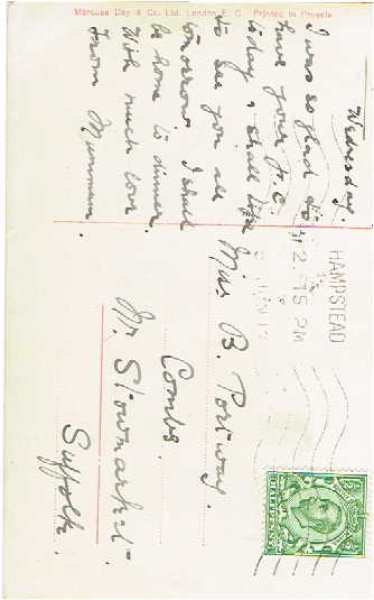 Marcuse Day & Co. Ltd. London E. C. Printed in Prussia
Wednesday.
I was so glad to
have your p.c.
today & shall hope
to see you all
tomorrow I shall
be home to dinner.
With much love
from Mummum.
HAMPSTEAD
2.15 PM
Miss B. Portway.
Combs.
Nr. Stowmarket.
Suffolk.
HALFPENNY